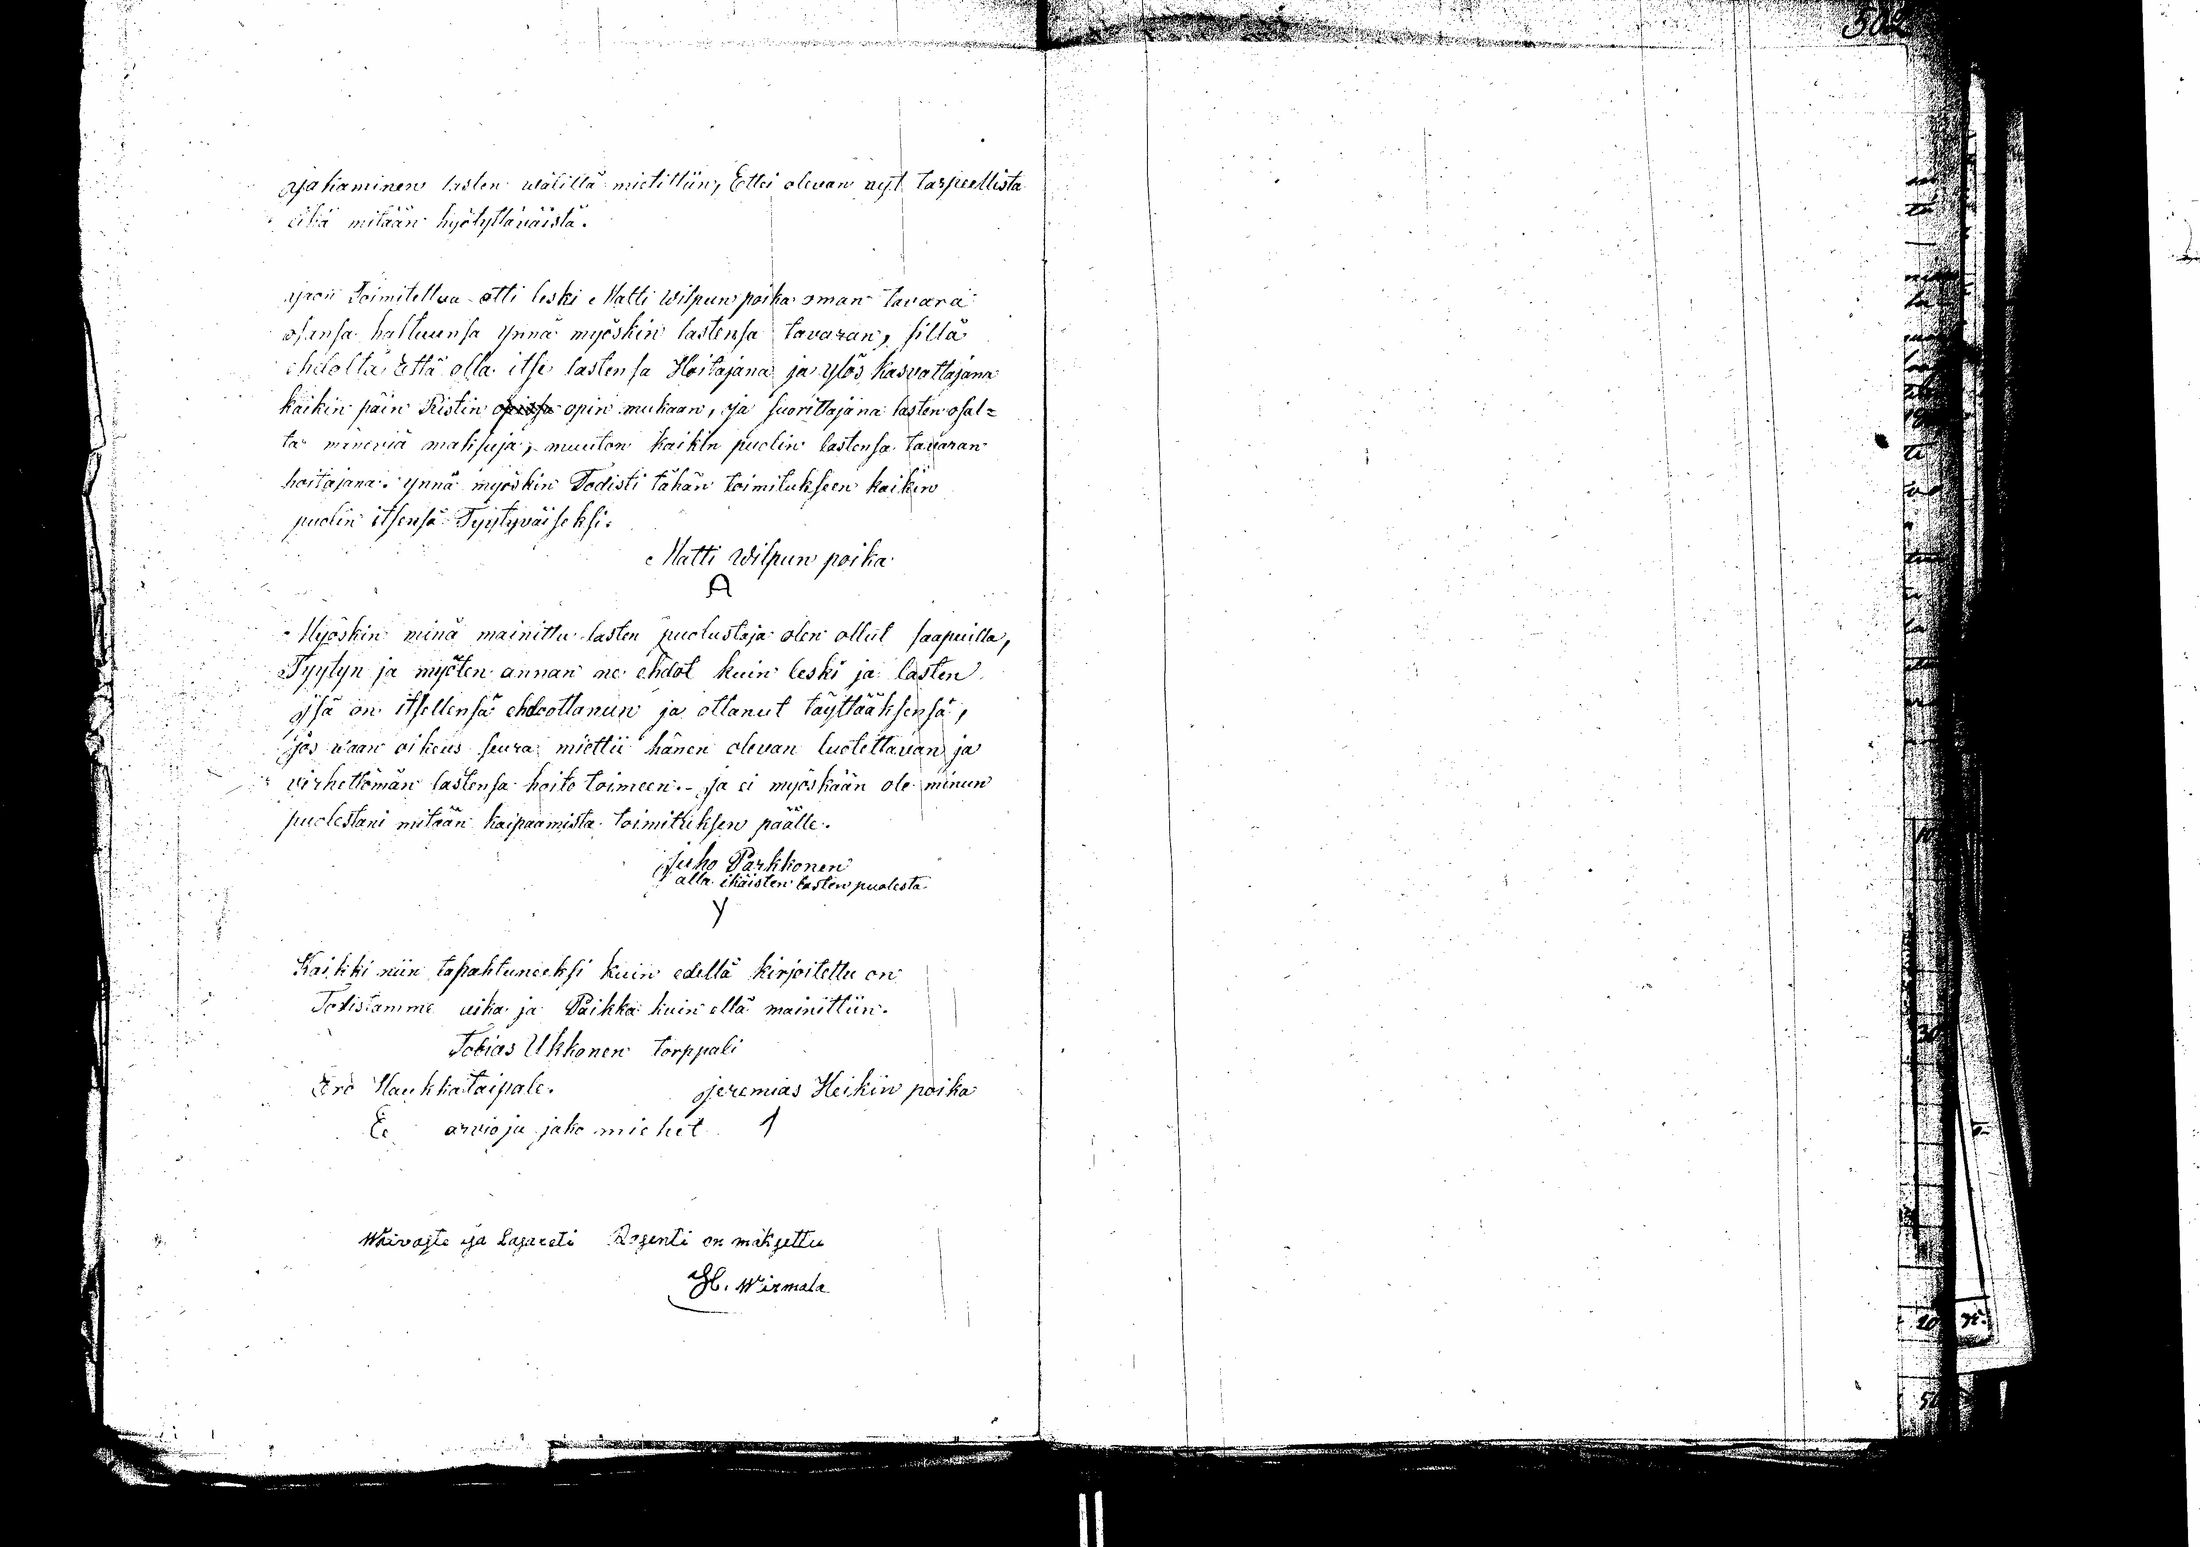 502
Jakaminen lasten wälillä mietittiin, Ettei olevan nyt tarpeellista
eikä mitään hyötyttäväistä.
Jaon Toimitettua otti leski Matti Wilpun poika oman tavara
osansa haltuunsa ynnä myöskin lastensa tavaran, sillä
ehdolla Että olla itse lastensa Hoitajana ja ylös kasvattajana
kaikin päin Ristin opin mukaan, ja suorittajana lasten osal=
ta meneviä maksuja, muuton kaikin puolin lastensa tavaran
hoitajana. ynnä myöskin Todisti tähän toimitukseen kaikin
puolin itsensä Tyytyväiseksi.
Matti Wilpun poika
A
Myöskin minä mainittu lasten puolustaja olen ollut saapuilla,
Tyytyn ja myöten annan ne ehdot kuin leski ja lasten
Jsä on itsellensä ehdoottanun ja ottanut täyttääksensä,
Jos waan oikeus seura miettii hänen olevan luotettavan ja
virhettömän lastensa hoito toimeen. - Ja ei myöskään ole minun
puolestani mitään kaipaamista toimituksen päälle.
Juho Parkkonen
alla ikäisten lasten puolesta
Y
Kaikki niin tapahtuneeksi kuin edellä kirjoitettu on
Todistamme aika ja Paikka kuin ellä mainittiin.
Tobias Ukkonen torppali
Ero Haukkataipale. Jeremias Heikin poika
EE arvio ja jako miehet 1
Waivaste ja Lasareti Rosenti on maksettu
H. Wirmala